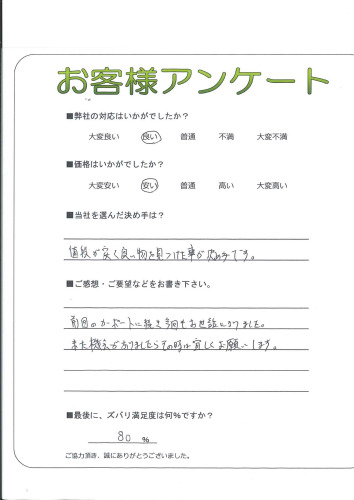 お客様アンケート
■弊社の対応はいかがでしたか？
大変良い 良い 普通 不満 大変不満
■価格はいかがでしたか？
大変安い 安い 普通 高い 大変高い
■当社を選んだ決め手は？
値段が安く良い物を見つけた事が決め手です。
■ご感想・ご要望などをお書き下さい。
前回のカーポートに続き今回もお世話になりました。
また機会がありましたらその時は宜しくお願いします。
■最後に、ズバリ満足度は何％ですか？
80 ％
ご協力頂き、誠にありがとうございました。